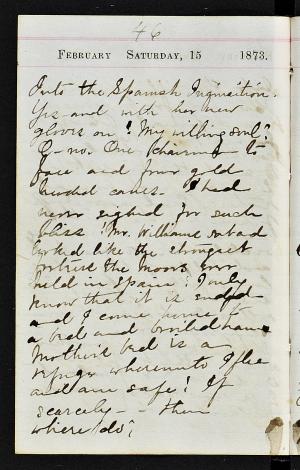 46
FEBRUARY SATURDAY, 15 1873.
Into the Spanish Inquisition.
Yes and with her new
gloves on! My willing soul?
O - no. One chairman to
face and four gold
headed canes. I had
never sighed for such
bliss! Mr. Williams
looked like the strongest
fortress the moors ever
held in Spain! I only
know that it is ended
and I come home to
a bed and broiled ham.
Mother's bed is a
refuge whereunto I flee
and am safe! If
scarcely - - then
where do;